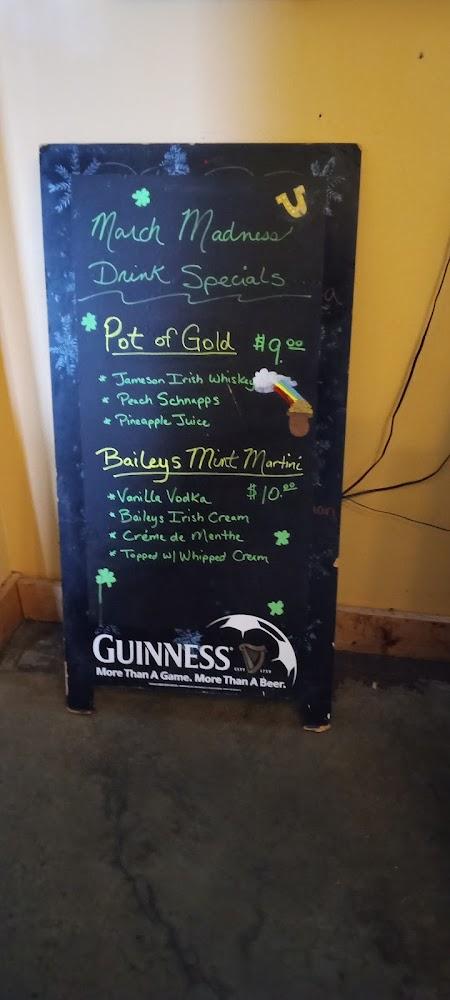 March Madness
Drink Specials
Pot of Gold $9.00
* Jameson Irish Whiskey
* Peach Schnapps
* Pineapple Juice
Baileys Mint Martini
* Vanilla Vodka $10.00
* Baileys Irish Cream
* Créme de Menthe
* Topped w/ Whipped Cream
GUINNESS®
ESTD 1759
More Than A Game. More Than A Beer.